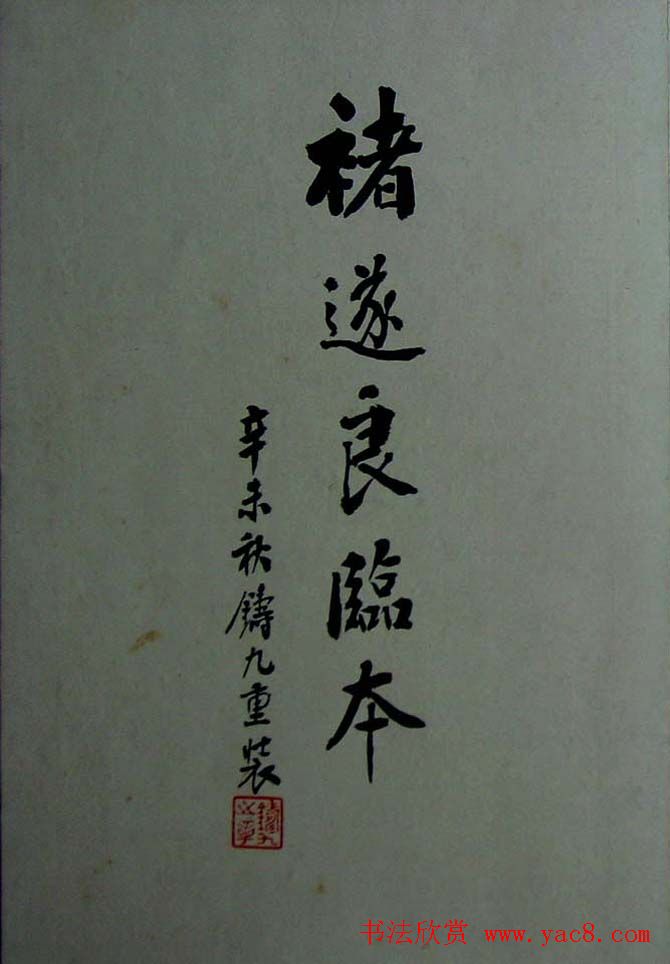 褚遂良臨本
辛未秋鑄九重裝
书法欣赏 www.yac8.com